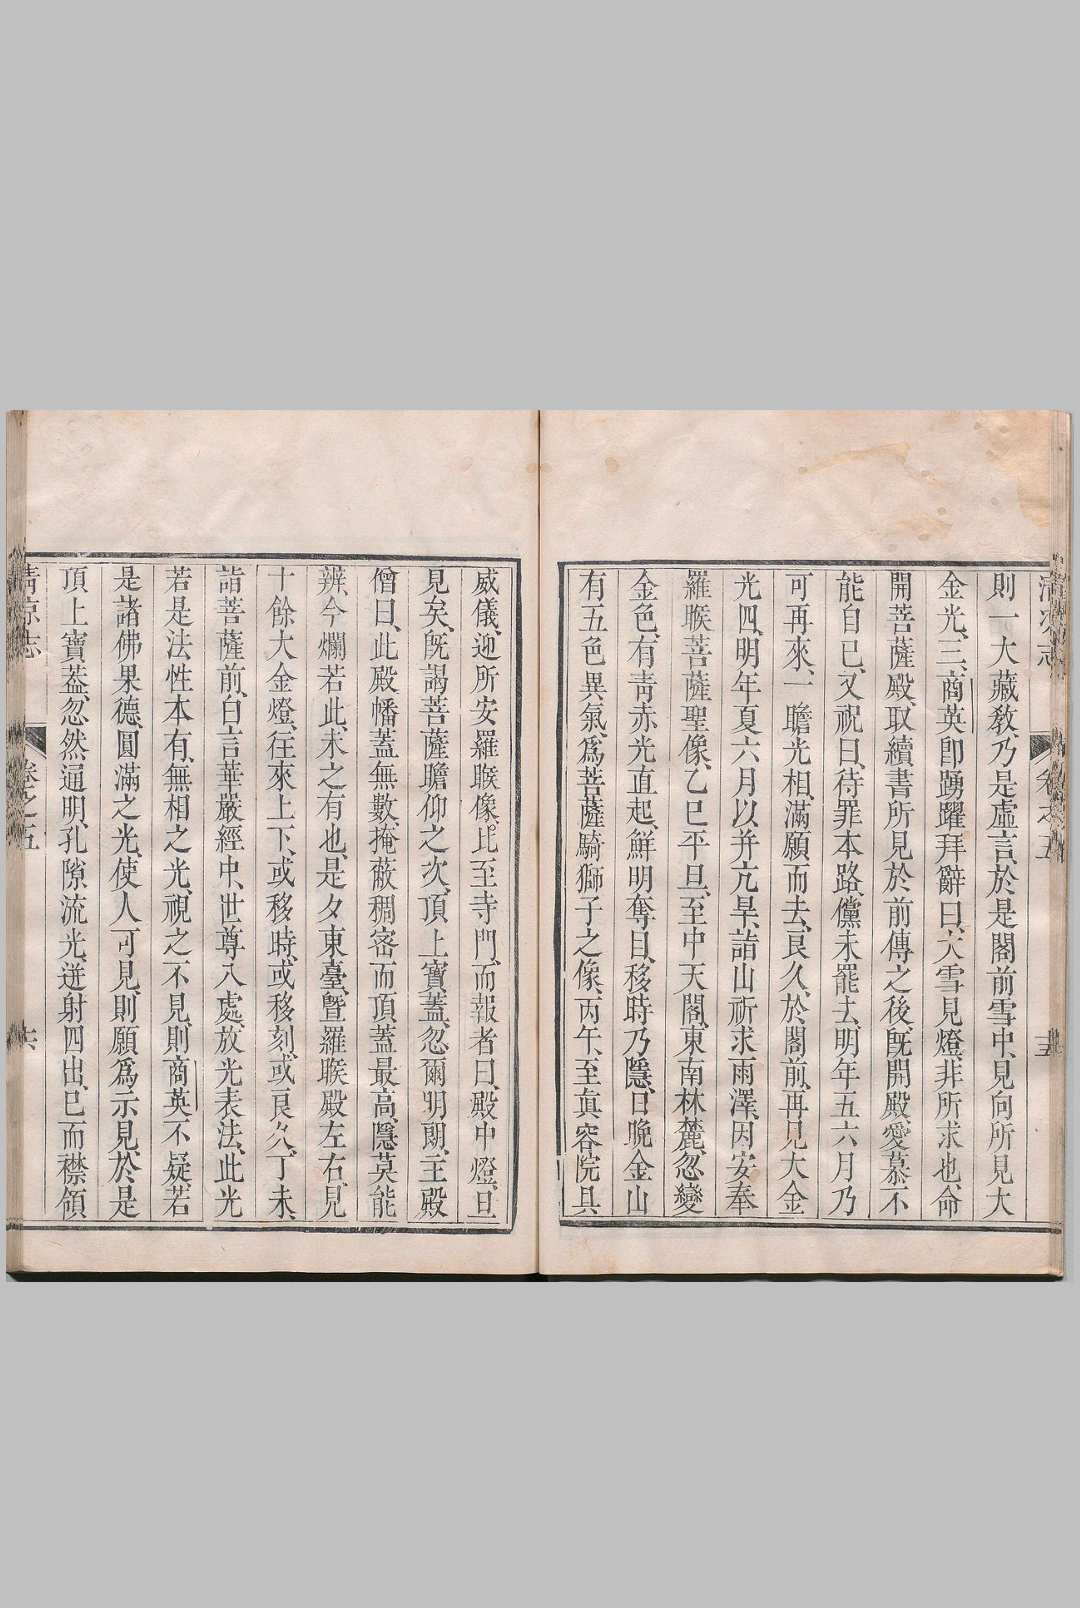 清涼志 卷之五 十五
則一大藏教乃是虛言、於是閣前雪中、見向所見大
金光、三、商英卽踴躍拜辭曰、大雪見燈、非所求也、命
開菩薩殿、取續書所見於前傳之後、旣開殿、愛慕不
能自已、又祝曰、待罪本路、儻未罷去、明年五六月乃
可再來、一瞻光相、滿願而去、良久、於閣前、再見大金
光四、明年夏六月、以并亢旱、詣山祈求雨澤、因安奉
羅睺菩薩聖像、乙巳平旦、至中天閣、東南林麓、忽變
金色、有青赤光直起、鮮明奪目、移時乃隱、日晚金山
有五色異氣、爲菩薩騎獅子之像、丙午、至眞容院、具
威儀、迎所安羅睺像、比至寺門、而報者曰、殿中燈、旦
見矣、旣謁菩薩瞻仰之次、頂上寶蓋、忽爾明朗、主殿
僧曰、此殿幡蓋無數、掩蔽稠密而頂蓋最高、隱莫能
辨、今爛若此、未之有也、是夕東臺、曁羅睺殿左右、見
十餘大金燈、往來上下、或移時、或移刻、或良久、丁未、
詣菩薩前、白言、華嚴經中、世尊入處、放光表法、此光
若是法性本有、無相之光、視之不見、則商英不疑、若
是諸佛果德、圓滿之光、使人可見、則願爲示見、於是
頂上寶蓋、忽然通明、孔隙流光、迸射四出、已而襟領
清涼志 卷之五 六